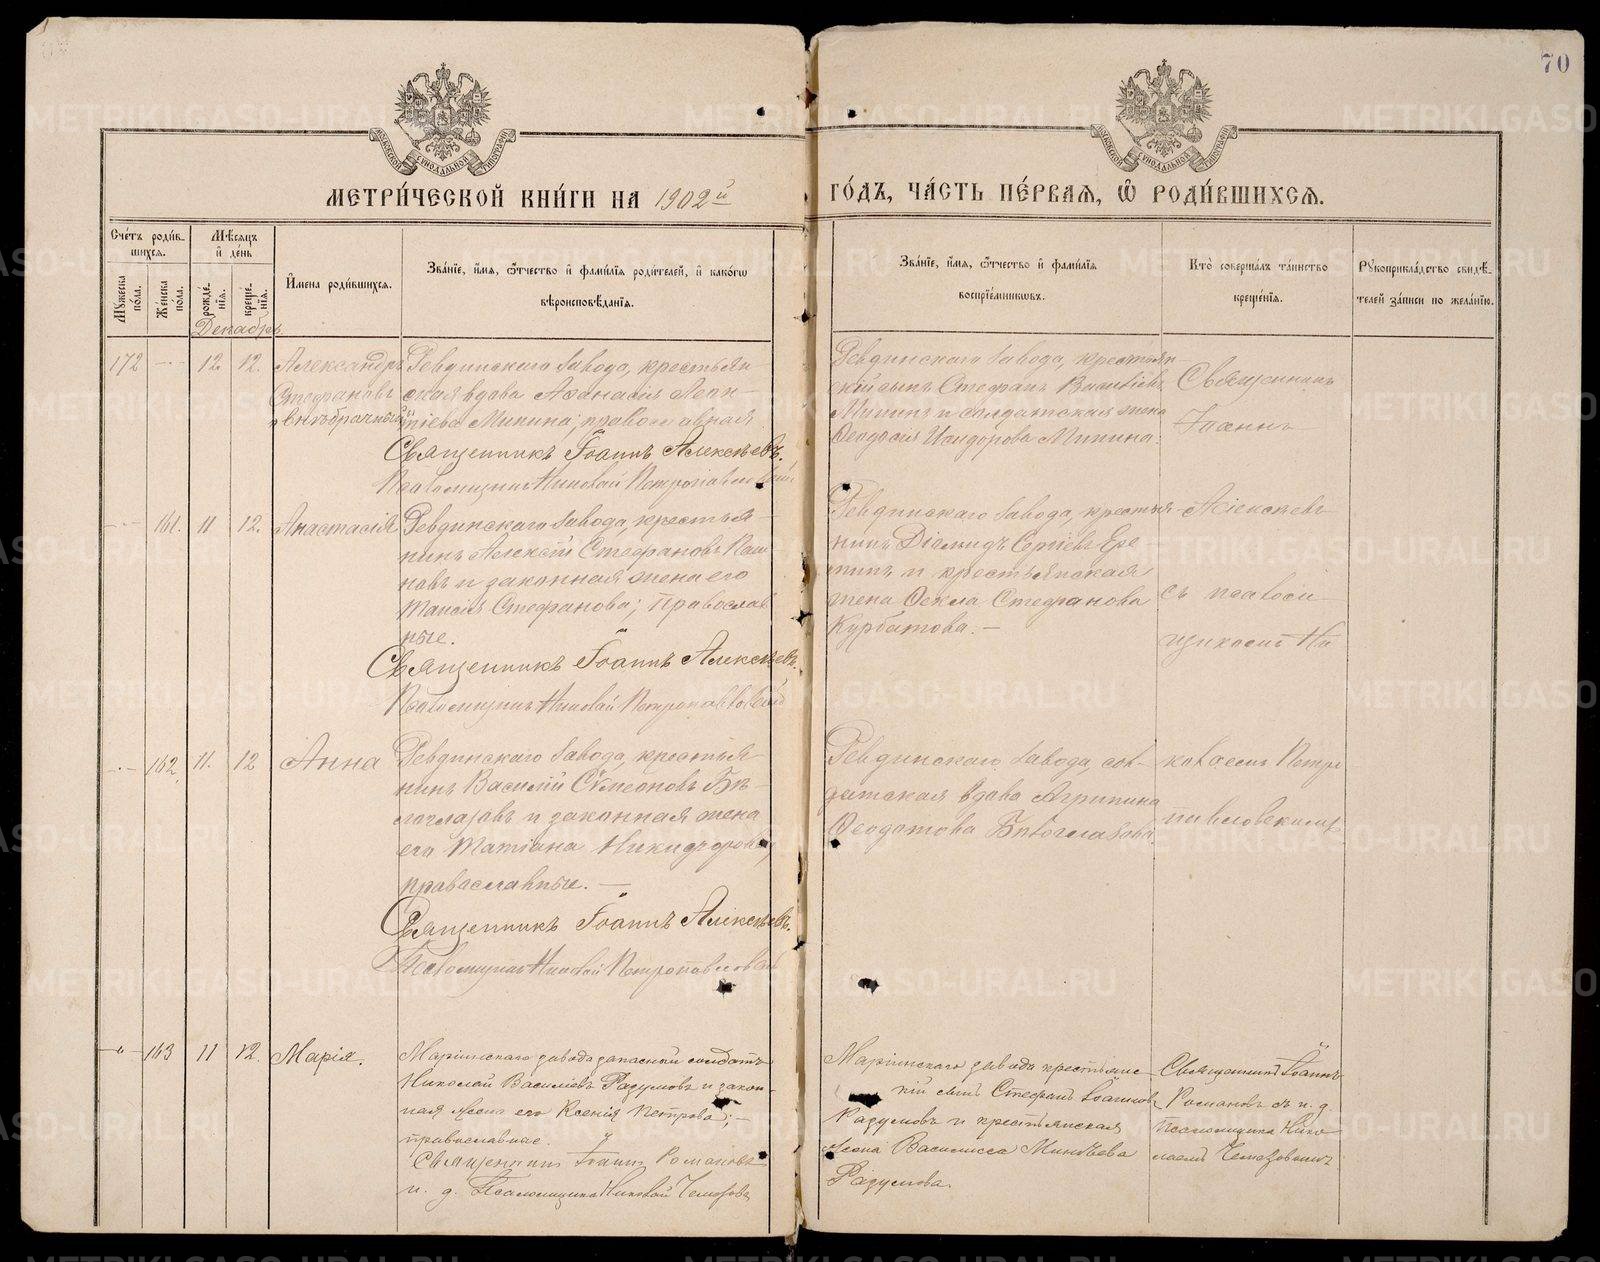 70
МЕТРИ́ЧЕСКОЙ КНИ́ГИ НА 1902й ГО́ДЪ, ЧА́СТЬ ПЕ́РВАѦ, Ѽ РОДИ́ВШИХСѦ.
Счётъ роди́вшихсѧ.
Мѣ́сѧцъ и де́нь
Мꙋ́жеска по́ла.
Же́нска по́ла.
рожде́нїѧ.
креще́нїѧ.
И҆мена роди́вшихсѧ.
Зва́нїе, и҆́мѧ, ѻ҆́тчество и҆ фами́лїѧ роди́телей, и҆ како́гѡ
вѣроисповѣ́данїѧ.
Зва́нїе, и҆́мѧ, ѻ҆́тчество и҆ фами́лїѧ
воспрїе́мникѡвъ.
Кто̀ соверша́лъ та́инство
креще́нїѧ.
Рꙋкоприкла́дство свидѣ́-
телей за́писи по жела́нїю.
Декабрь.
172 12. 12. Александръ
Стефановъ
внѣбрачный
Ревдинскаго завода, крестьян-
ская вдова Аѳанасія Леон-
тіева Минина; православная
Священникъ Іоаннъ Алексѣевъ.
Псаломщикъ Николай Петропавловскій
Ревдинскаго завода, крестьян-
скій сынъ Стефанъ Василіевъ
Мининъ и солдатская жена
Ѳеодосія Исидорова Минина.
Священникъ
Іоаннъ
161. 11 12. Анастасія
Ревдинскаго завода, крестья-
нинъ Алексій Стефановъ
и законная жена его
Стефанова; православ
ные.
Священникъ Іоаннъ Алексѣевъ.
Псаломщикъ Николай Петропавловскій
Ревдинскаго завода, крестья-
нинъ Діомидъ Сергіевъ
и крестьянская
жена Ѳекла Стефанова
Курбатова.
Алексѣевъ
съ псалом
щикомъ Ни
162. 11. 12 Анна
Ревдинскаго завода, крестья-
нинъ Василій Сѵмеоновъ Бѣ-
логлазовъ и законная жена
его Татіана Никифорова,
православные.
Священникъ Іоаннъ Алексѣевъ.
Псаломщикъ Николай Петропавловскій
Ревдинскаго завода, сол-
датская вдова Агрипина
Ѳеодотова Бѣлоглазова.
колаемъ Петро
павловскимъ
163 11 12. Марія.
Маріинскаго завода запасный солдатъ
Николай Василіевъ Разумовъ и закон-
ная жена его Ксенія Петрова;
православные.
Священникъ Іоаннъ Романовъ
и. д. Псаломщика Николай
Маріинскаго завода крестьянс-
кій сынъ Стефанъ Іоанновъ
Разумовъ и крестьянская
жена Василисса
Разумова.
Священникъ Іоаннъ
Романовъ съ и. д.
псаломщика Нико
лаемъ